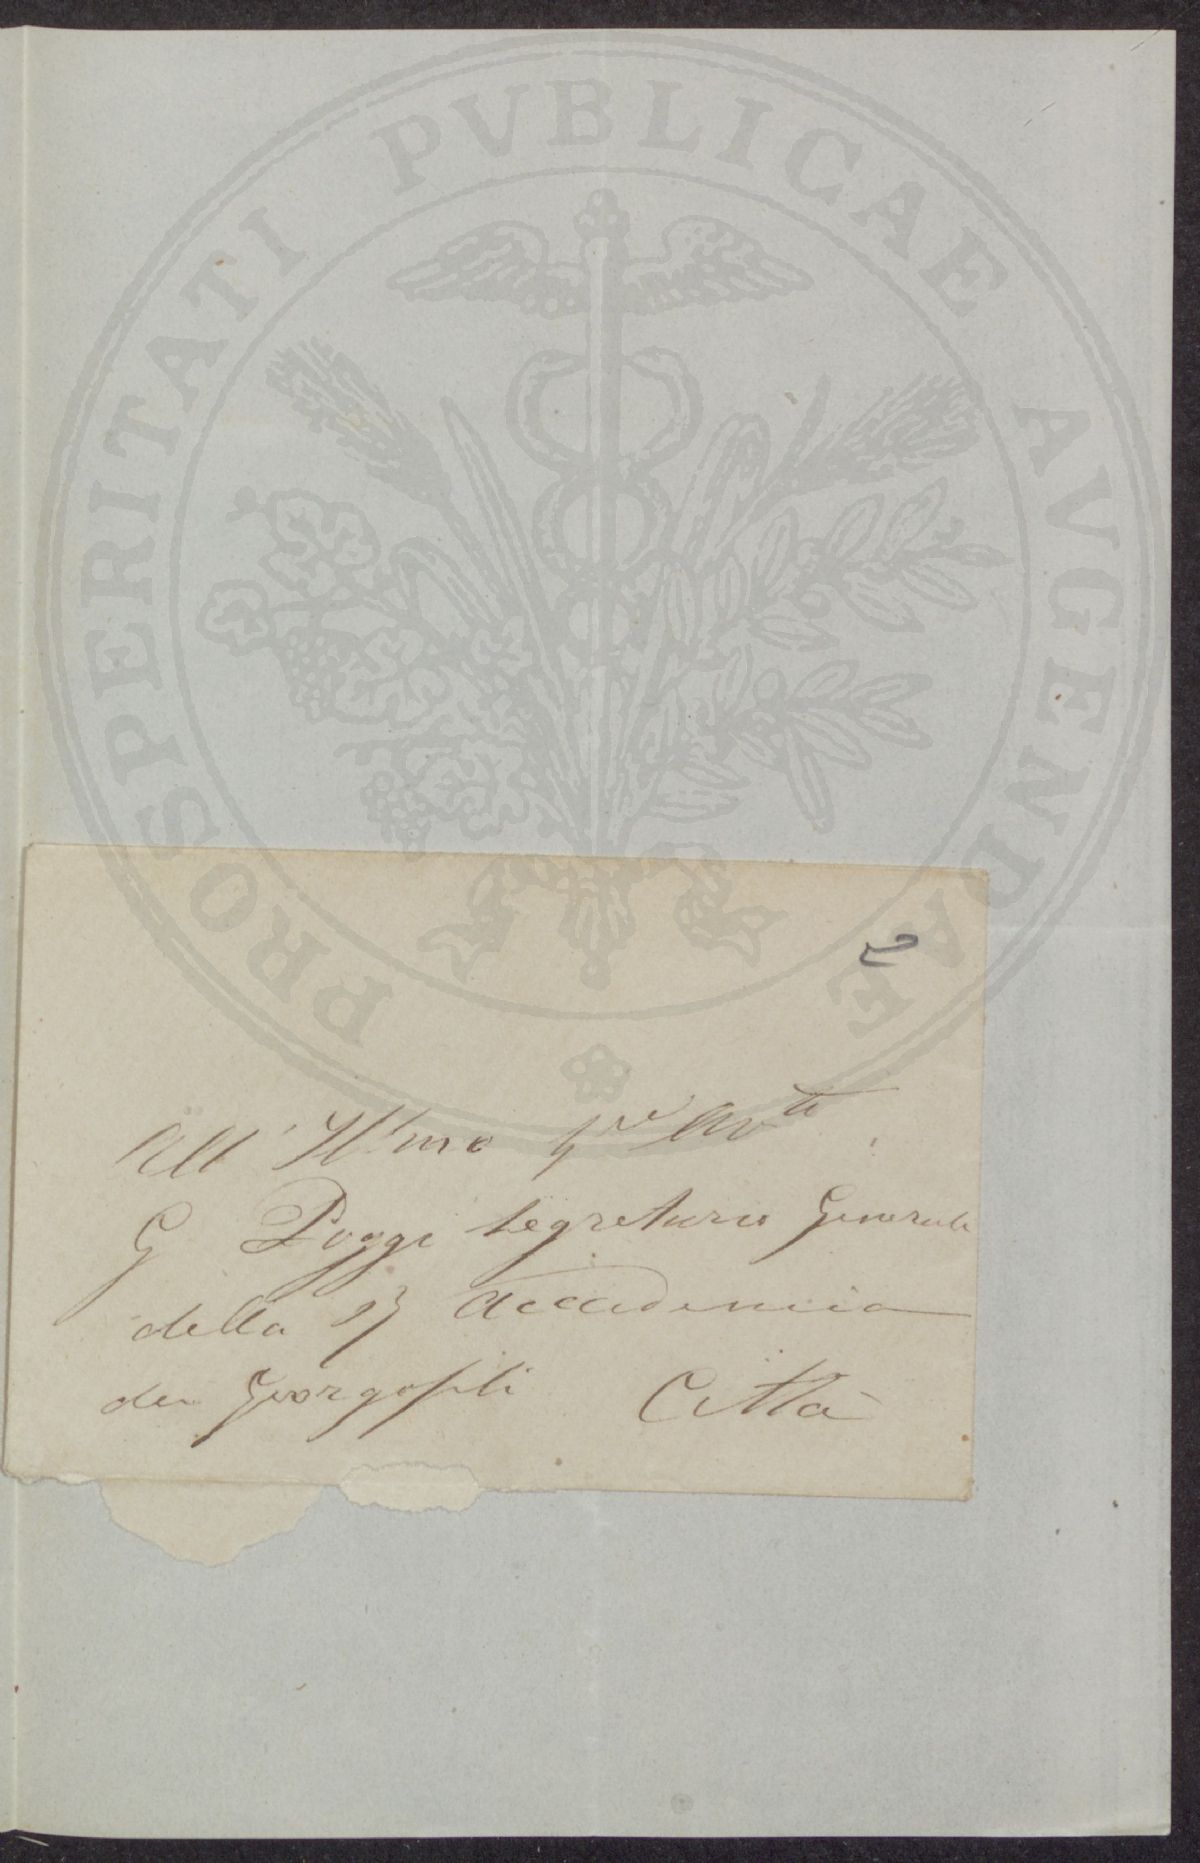 PROSPERITATI PVBLICAE AVGENDAE
All' Illmo Sre Avto
G Poggi Segretario Generale
della Accademia
dei Georgofili Città